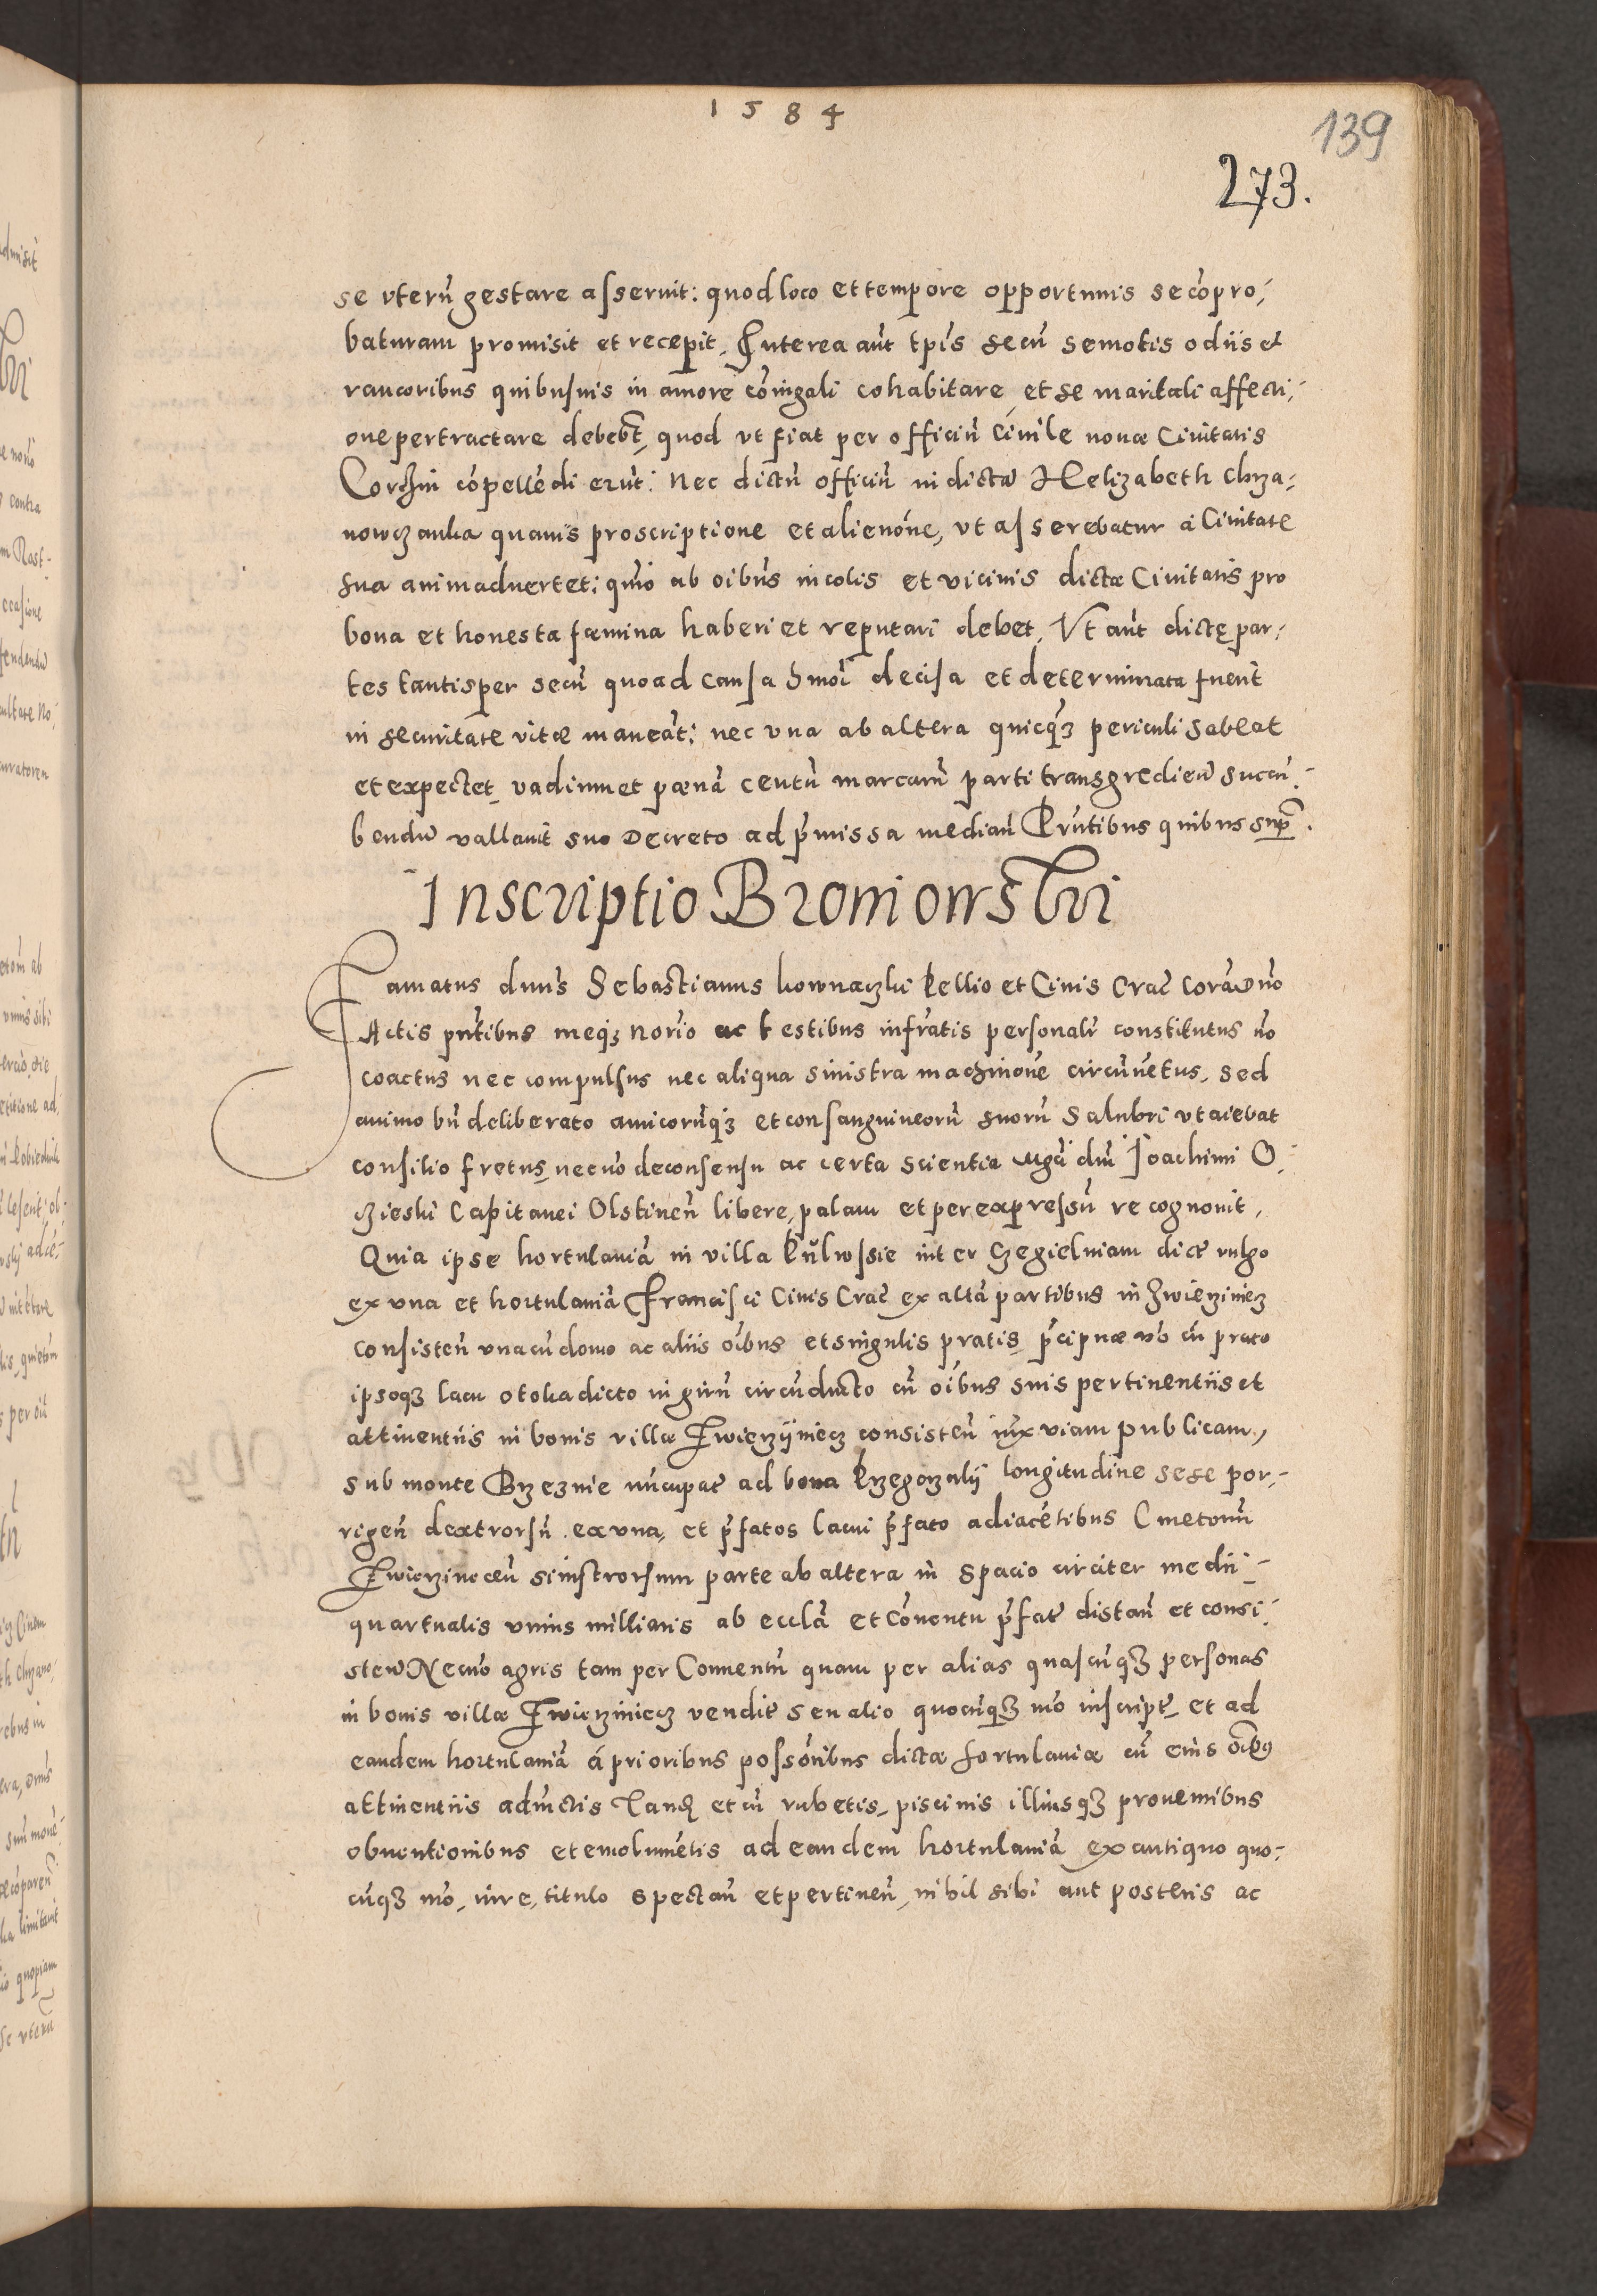 1584
139
273.
se vterũ gestare asseruit: quod loco et tempore opportunis se cõpro-
baturam promisit et recepit. Interea aũt tp̃is secũ semotis odiis et
rancoribus quibusuis in amore cõiugali cohabitare, et se maritali affecti-
one pertractare debebt̃, quod vt fiat per officiũ Ciuile nouæ Ciuitatis
Corchin cõpellẽdi erũt: Nec dictũ officiũ in dictã Helizabeth Chrza-
nowczanka quauis proscriptione et alienõne, vt asserebatur á Ciuitate
sua animaduertet: qm̃o ab oib̃us incolis et vicinis dictæ Ciuitatis pro
bona et honesta fœmina haberi et reputari debet. Vt aũt dictę par-
tes tantisper secũ quoad causa hmõi decisa et determinata fuerit
in securitate vitæ maneãt: nec vna ab altera quicq̃ȝ periculi habeat
et expectet, vadium et pœnã centũ marcarũ parti transgredien̄ succũ-
bendū vallauit suo Decreto ad p̃missa median̄ Pr̃ntibus quibus sup̃.
Inscriptio Broniowski
Famatus dnus Sebastianus kownaczki Pellio et Ciuis Crac̃ Corã Dño
Actis pñtibus meq̃ȝ Norĩo ac testibus infr̃atis personalr̃ constitutus nõ
coactus nec compulsus nec aliqua sinistra machinõne circũuetus, sed
animo bñ deliberato amicorũqȝ et consanguineorũ suorũ Salubri vt aiebat
consilio fretus, necnõ de consensu ac certa scientia Mgci dñi Joachimi O-
czieski Capitanei Olstinen̄ libere, palam et per expressũ recognouit,
Quia ipse hortulaniã in villa Pulwsie inter Czegielniam dict̃ vulgo
ex vna et hortulaniã Francisci Ciuis Crac̃ ex altã partibus in Zwierziniecz
Consisten̄ vna cũ domo ac aliis oĩbus et singulis pratis, p̃cipuæ võ cũ prato
ipsoqȝ lacu otoka dicto in girũ circũducto cũ oĩbus suis pertinentiis et
attinentiis in bonis villæ Zwierzÿniecz consisten̄ iux̃ viam publicam,
sub monte Brzeznie nũcupat̃ ad bona Przegorzalÿ longitudine sese por-
rigen̄ dextrorsũ ex vna, et p̃fatos lacui p̃fato adiacẽtibus Cmetonũ
Zwierzinecen̄ sinistrorsum parte ab altera in spacio circiter medii
quartualis vnius milliaris ab ecclã et Cõuentu p̃fat̃ distan̄ et consi-
sten̄ Necnõ agris tam per Conuentũ quam per alias quascũqȝ personas
in bonis villæ Zwierziniecz vendit̃ seu alio quocũqȝ mõ inscript̃, et ad
eandem hortulaniã á prioribus possõribus dictæ hortulaniæ cũ eius oĩbȝ
attinentiis adiũctis Tandẽ et cũ rubetis, piscinis illiusqȝ prouentibus
obuentionibus et emolumẽtis ad eandem hortulaniã ex antiquo quo-
cũqȝ mõ, iure, titulo spectan̄ et pertinen̄, nihil sibi aut posteris ac